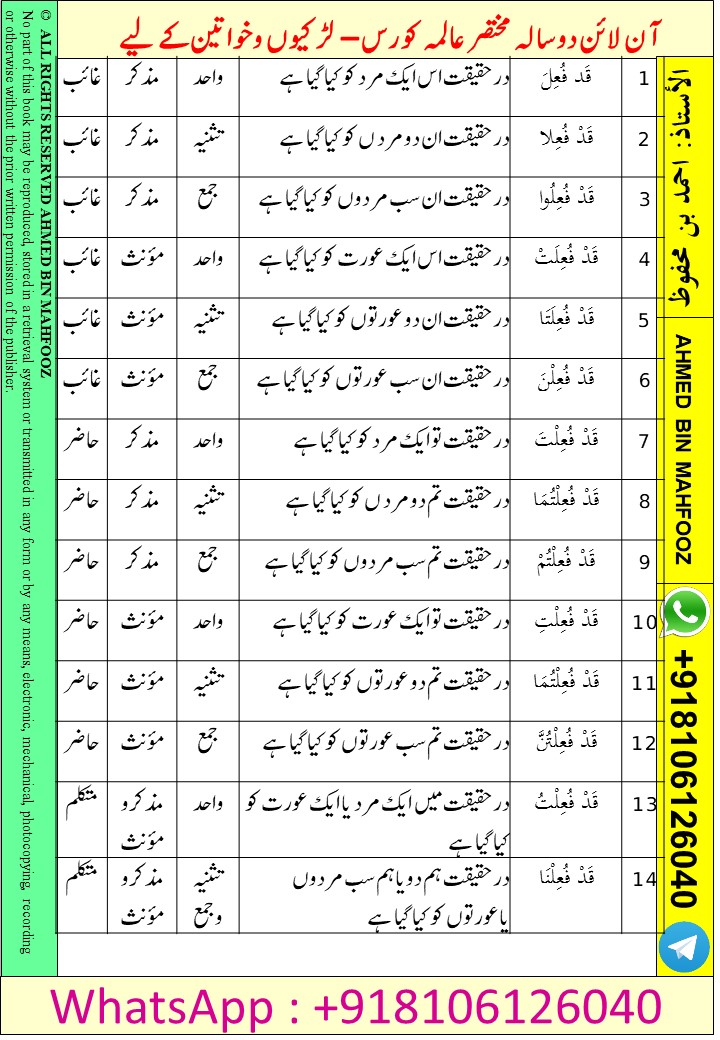 آن لائن دو سالہ مختصر عالمہ کورس – لڑکیوں و خواتین کے لیے
1 قَد فُعِلَ درحقیقت اس ایک مرد کو کیا گیا ہے واحد مذکر غائب
2 قَدْ فُعِلا درحقیقت ان دو مردں کو کیا گیا ہے تثنیہ مذکر غائب
3 قَدْ فُعِلُوا درحقیقت ان سب مردوں کو کیا گیا ہے جمع مذکر غائب
4 قَدْ فُعِلَتْ درحقیقت اس ایک عورت کو کیا گیا ہے واحد مؤنث غائب
5 قَدْ فُعِلَتَا درحقیقت ان دو عورتوں کو کیا گیا ہے تثنیہ مؤنث غائب
6 قَدْ فُعِلْنَ درحقیقت ان سب عورتوں کو کیا گیا ہے جمع مؤنث غائب
7 قَدْ فُعِلْتَ درحقیقت تو ایک مرد کو کیا گیا ہے واحد مذکر حاضر
8 قَدْ فُعِلْتُمَا درحقیقت تم دو مردں کو کیا گیا ہے تثنیہ مذکر حاضر
9 قَدْ فُعِلْتُمْ درحقیقت تم سب مردوں کو کیا گیا ہے جمع مذکر حاضر
10 قَدْ فُعِلْتِ درحقیقت تو ایک عورت کو کیا گیا ہے واحد مؤنث حاضر
11 قَدْ فُعِلْتُمَا درحقیقت تم دو عورتوں کو کیا گیا ہے تثنیہ مؤنث حاضر
12 قَدْ فُعِلْتُنَّ درحقیقت تم سب عورتوں کو کیا گیا ہے جمع مؤنث حاضر
13 قَدْ فُعِلْتُ درحقیقت میں ایک مرد یا ایک عورت کو واحد مذکر و متکلم
کیا گیا ہے مؤنث
14 قَدْ فُعِلْنَا درحقیقت ہم دو یا ہم سب مردوں تثنیہ مذکر و متکلم
یا عورتوں کو کیا گیا ہے و جمع مؤنث
الأستاذ: احمد بن محفوظ
AHMED BIN MAHFOOZ
+918106126040
© ALL RIGHTS RESERVED AHMED BIN MAHFOOZ
No part of this book may be reproduced, stored in a retrieval system or transmitted in any form or by any means, electronic, mechanical, photocopying, recording
or otherwise without the prior written permission of the publisher.
WhatsApp : +918106126040